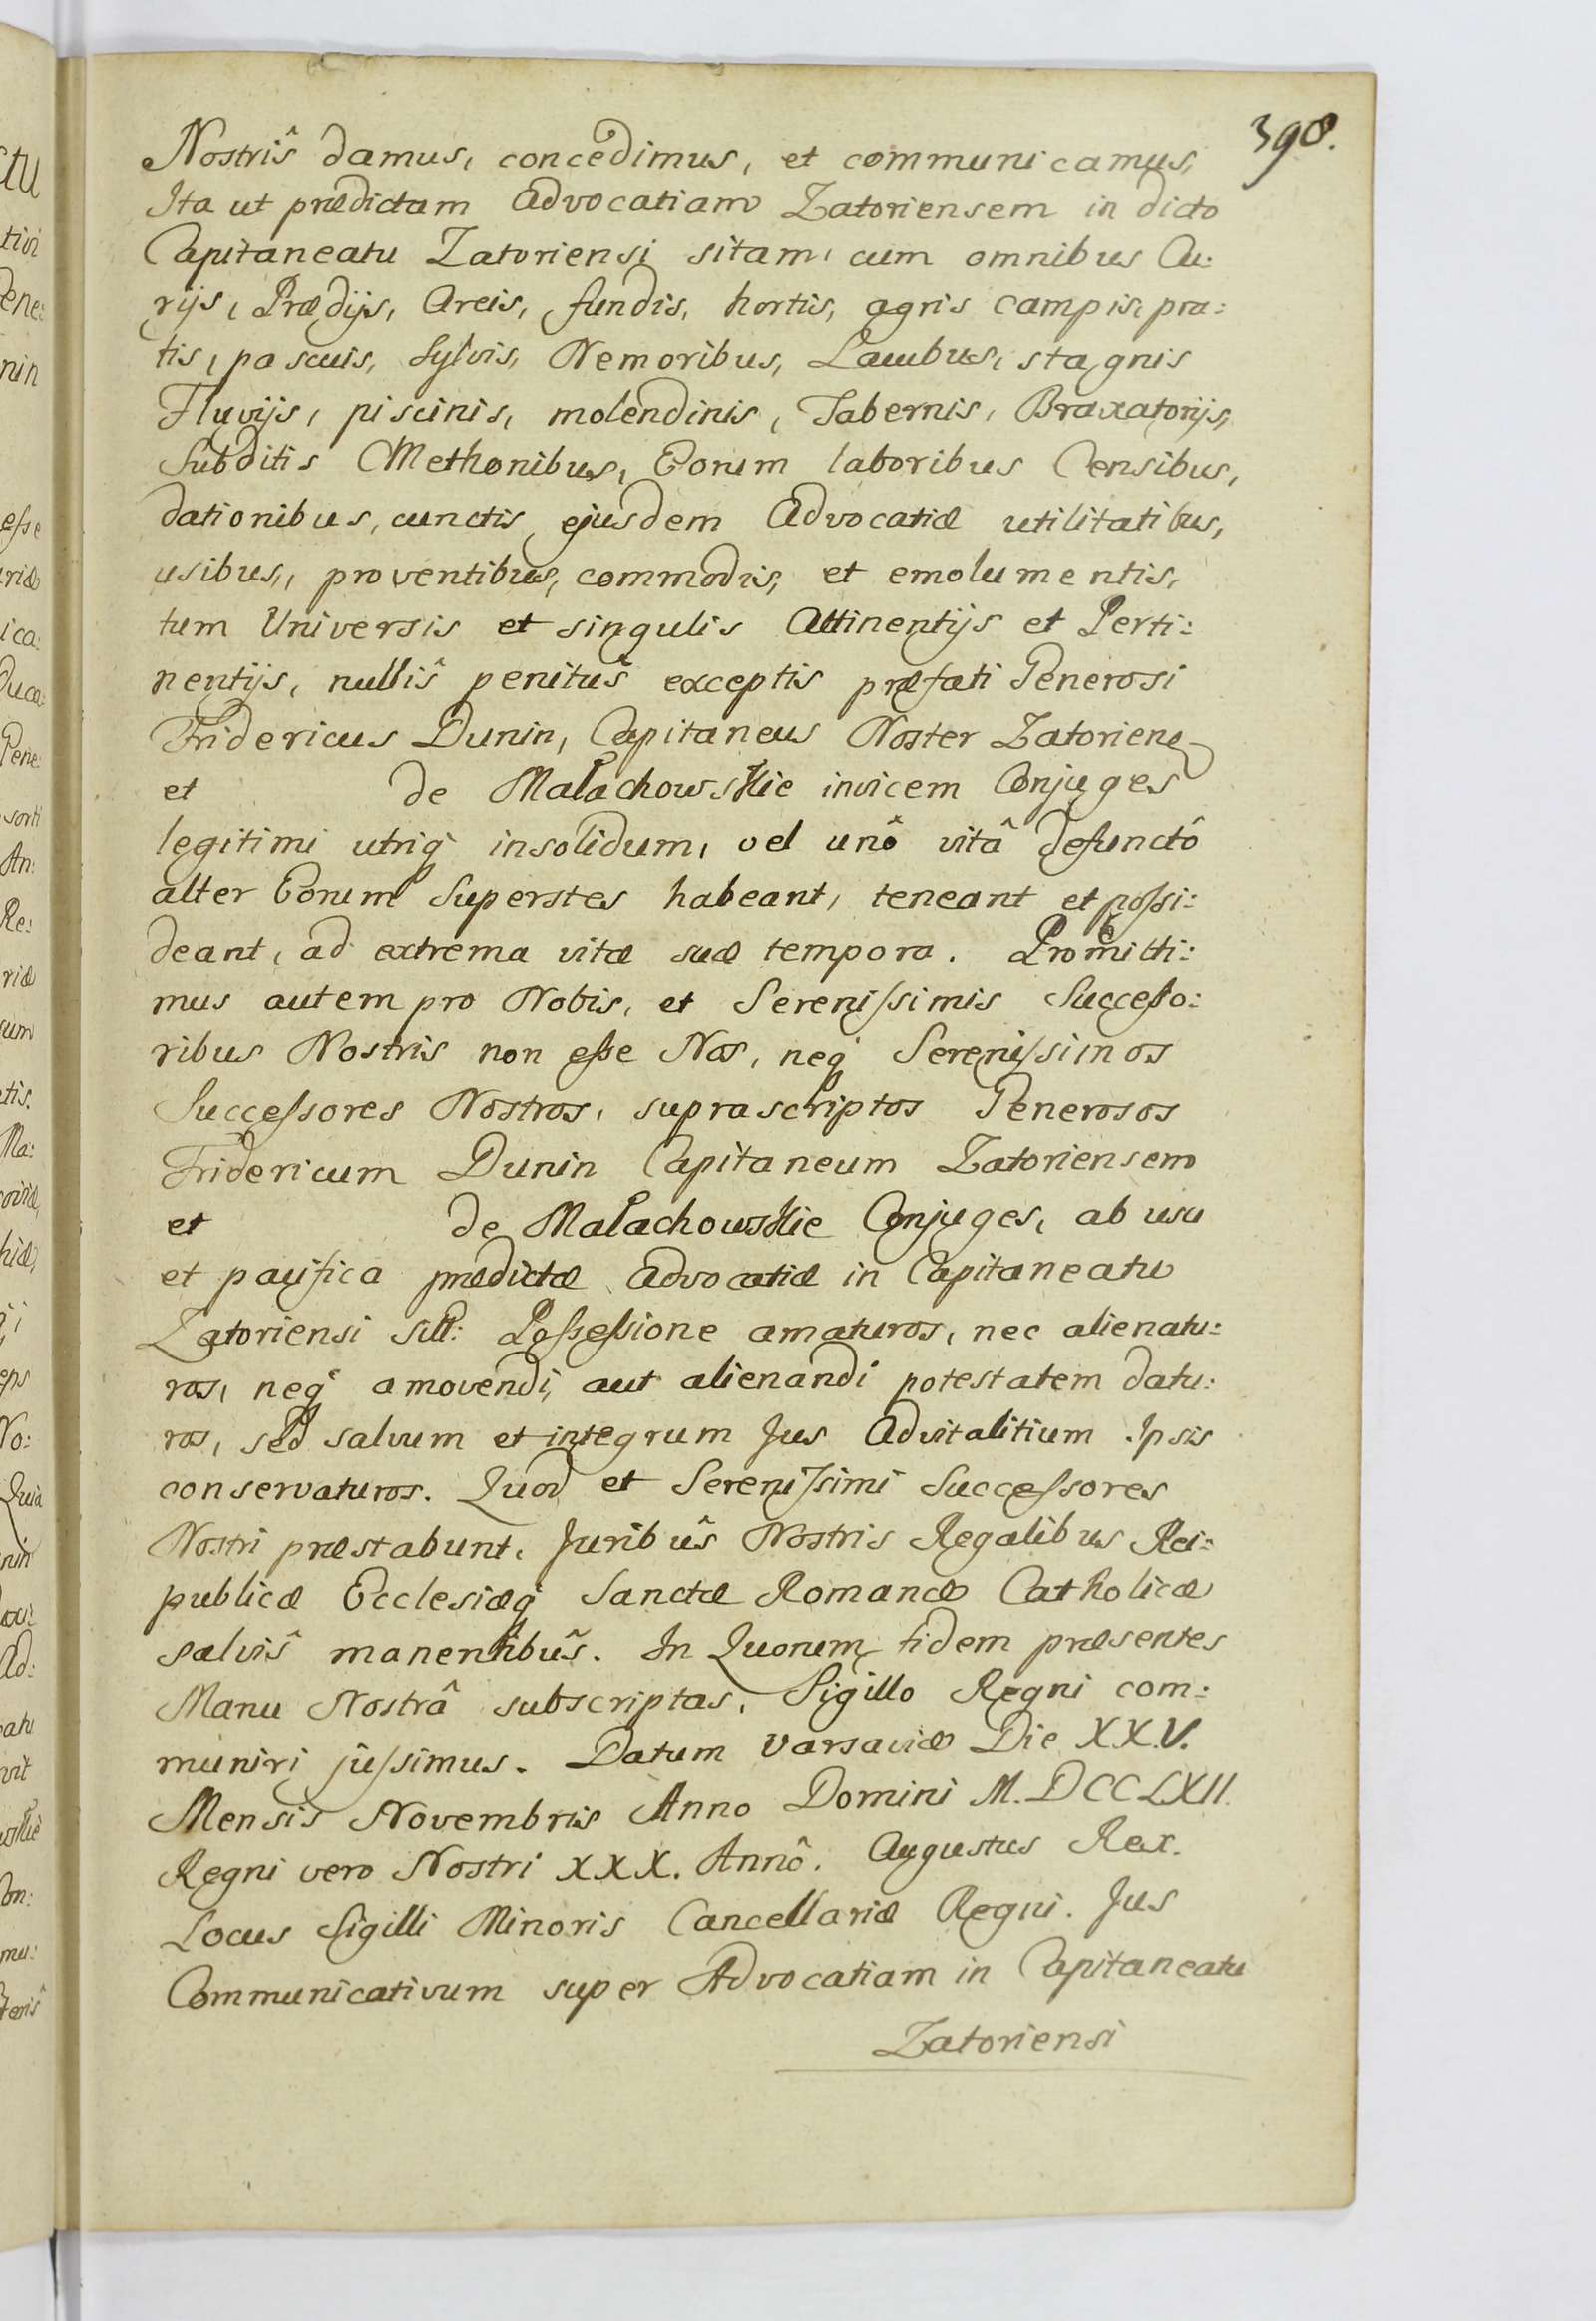 398.
Nostrîs damus, concedimus, et communicamus,
Ita ut prædictam Advocatiam Zatoriensem in dicto
Capitaneatu Zatoriensi sitam, cum omnibus Cu:
rijs, Prædijs, Areis, fundis, hortis, agris campis, pra:
tis, pascuis, Sylvis, Nemoribus, Lacubus, stagnis
Fluvijs, piscinis, molendinis, Tabernis, Braxatorijs,
Subditis Cmethonibus, Eorum laboribus Censibus,
dationibus, cunctis ejusdem Advocatiæ utilitatibus,
usibus, proventibus, commodis, et emolumentis,
tum Universis et singulis Attinentijs et Perti:
nentijs, nullîs penitûs exceptis præfati Generosi
Fridericus Dunin, Capitaneus Noster Zatorien:
et de Małachowskie invicem Conjuges
legitimi utriq insolidum, vel unô vitâ defunctô
alter Eorum Superstes habeant, teneant et possi:
deant, ad extrema vitæ suæ tempora. Promitti:
mus autem pro Nobis, et Serenissimis Successo:
ribus Nostris non esse Nos, neq Serenissimos
Successores Nostros, suprascriptos Generosos
Fridericum Dunin Capitaneum Zatoriensem
et de Małachowskie Conjuges, ab usu
et pacifica prædictæ Advocatiæ in Capitaneatu
Zatoriensi Possessione amaturos, nec alienatu:
ros, neq amovendi, aut alienandi potestatem datu:
ros, sed salvum et integrum Jus Advitalitium Ipsis
conservaturos. Quod et Serenissimi Successores
Nostri præstabunt. Juribûs Nostris Regalibus Rei:
publicæ Ecclesiæq Sanctæ Romanæ Catholicæ
salvîs manentibûs. In Quorum fidem præsentes
Manu Nostrâ subscriptas, Sigillo Regni com:
muniri jussimus. Datum Varsaviæ Die XXV.
Mensis Novembris Anno Domini M. DCCLXII.
Regni vero Nostri XXX. Annô. Augustus Rex.
Locus Sigilli Minoris Cancellariæ Regni. Jus
Communicativum super Advocatiam in Capitaneatu
Zatoriensi